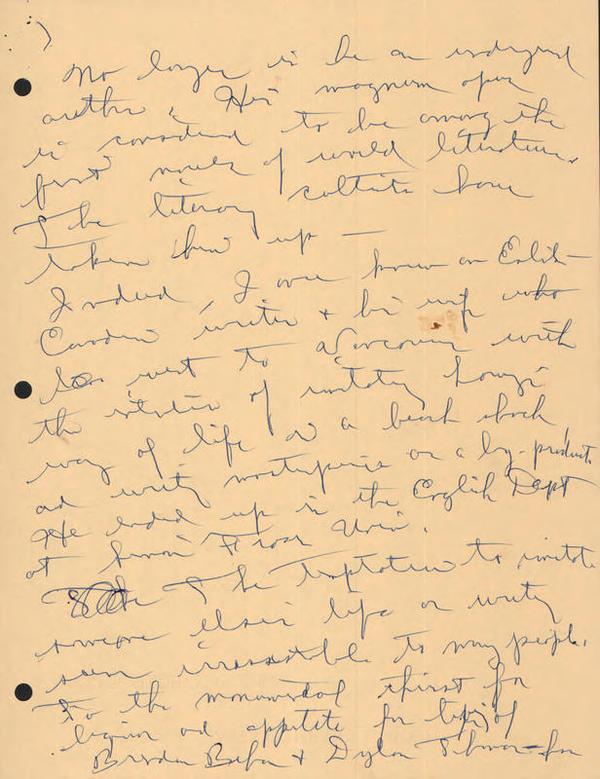 No longer is he an underground
author. His magnum opus
is considered to be among the
first novels of world literature.
The literary cultists have
taken him up —
Indeed, I once knew an English-
Canadian writer + his wife who
went to Vancouver with
the intention of imitating Lowry's
way of life in a beach shack,
and writing masterpieces as a by-product.
He ended up in the English Dept
at Simon Fraser Univ.
The temptation to imitate
someone else's life or writing
seems irresistible to many people.
To the monumental thirst for
liquor and appetite for life of
Brendan Behan + Dylan Thomas - for